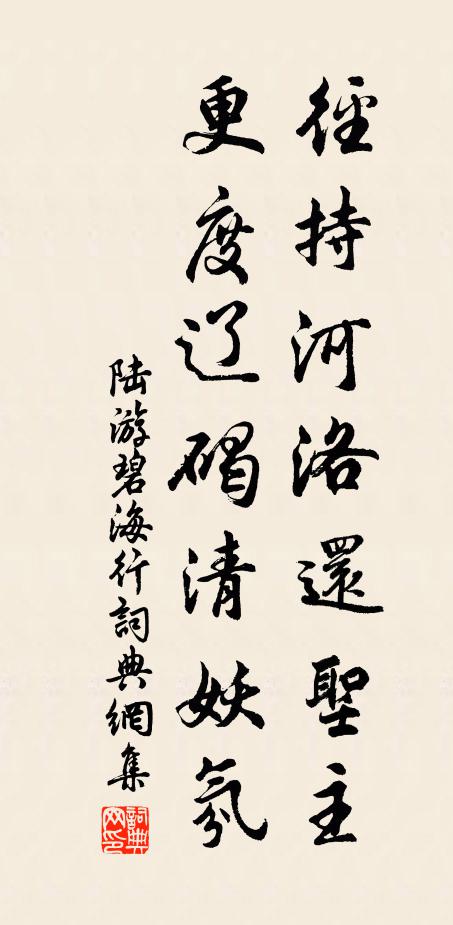 径持河洛還聖主
更度辽碣清妖氛
陆游碧海行詞典網集
詞典網印